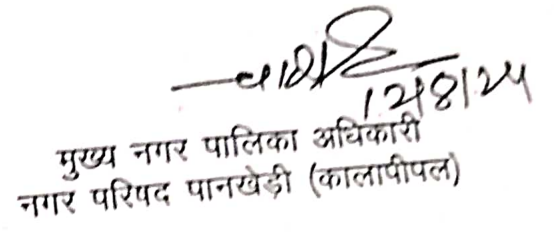 12/8/24
मुख्य नगर पालिका अधिकारी
नगर परिषद पानखेड़ी (कालापीपल)